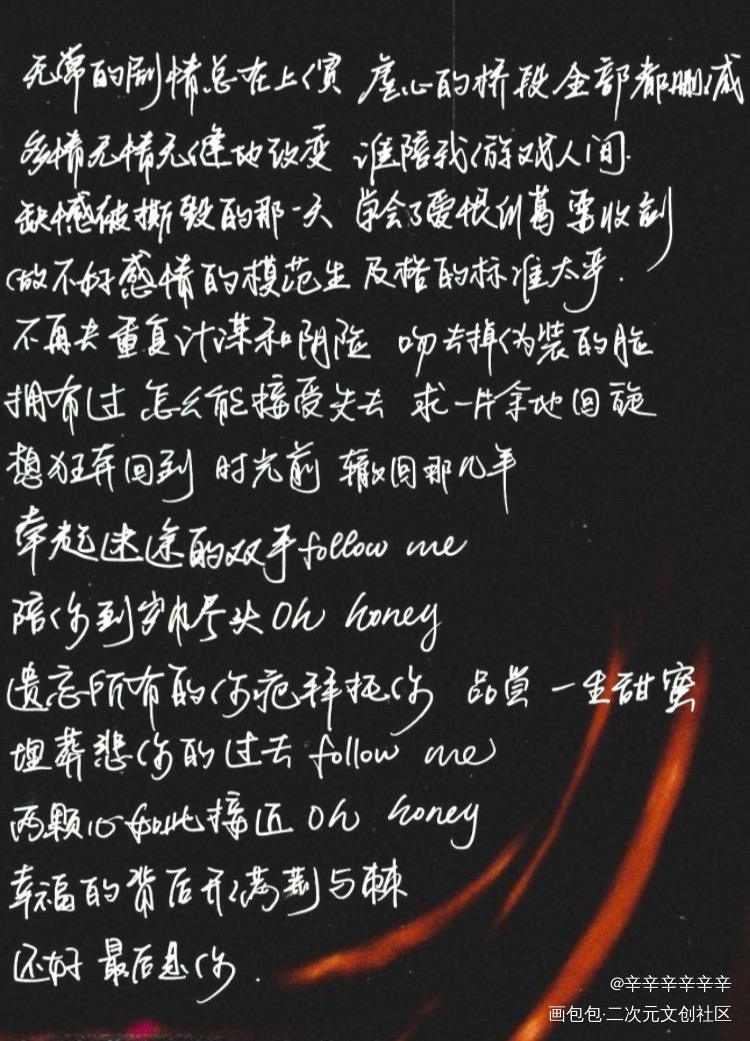 无常的剧情总在上演 虚心的桥段全部都删减
多情无情无缝地改变 谁陪我们游戏人间.
缺憾被撕毁的那一天 学会了爱恨到葛要收剑
做不好感情的模范生 及格的标准太严.
不再去重复计谋和阴险 吻去掉伪装的脸
拥有过 怎么能接受失去 求一片余地回旋
想狂奔回到 时光前 辙回那几年
牵起迷途的双手follow me
陪你到岁月尽头Oh honey
遗忘所有的伤疤拜托你 品尝 一生甜蜜
埋葬悲伤的过去 follow me
两颗心如此接近 Oh honey
幸福的背后开满荆与棘
还好 最后是你.
@辛辛辛辛辛辛
画包包·二次元文创社区